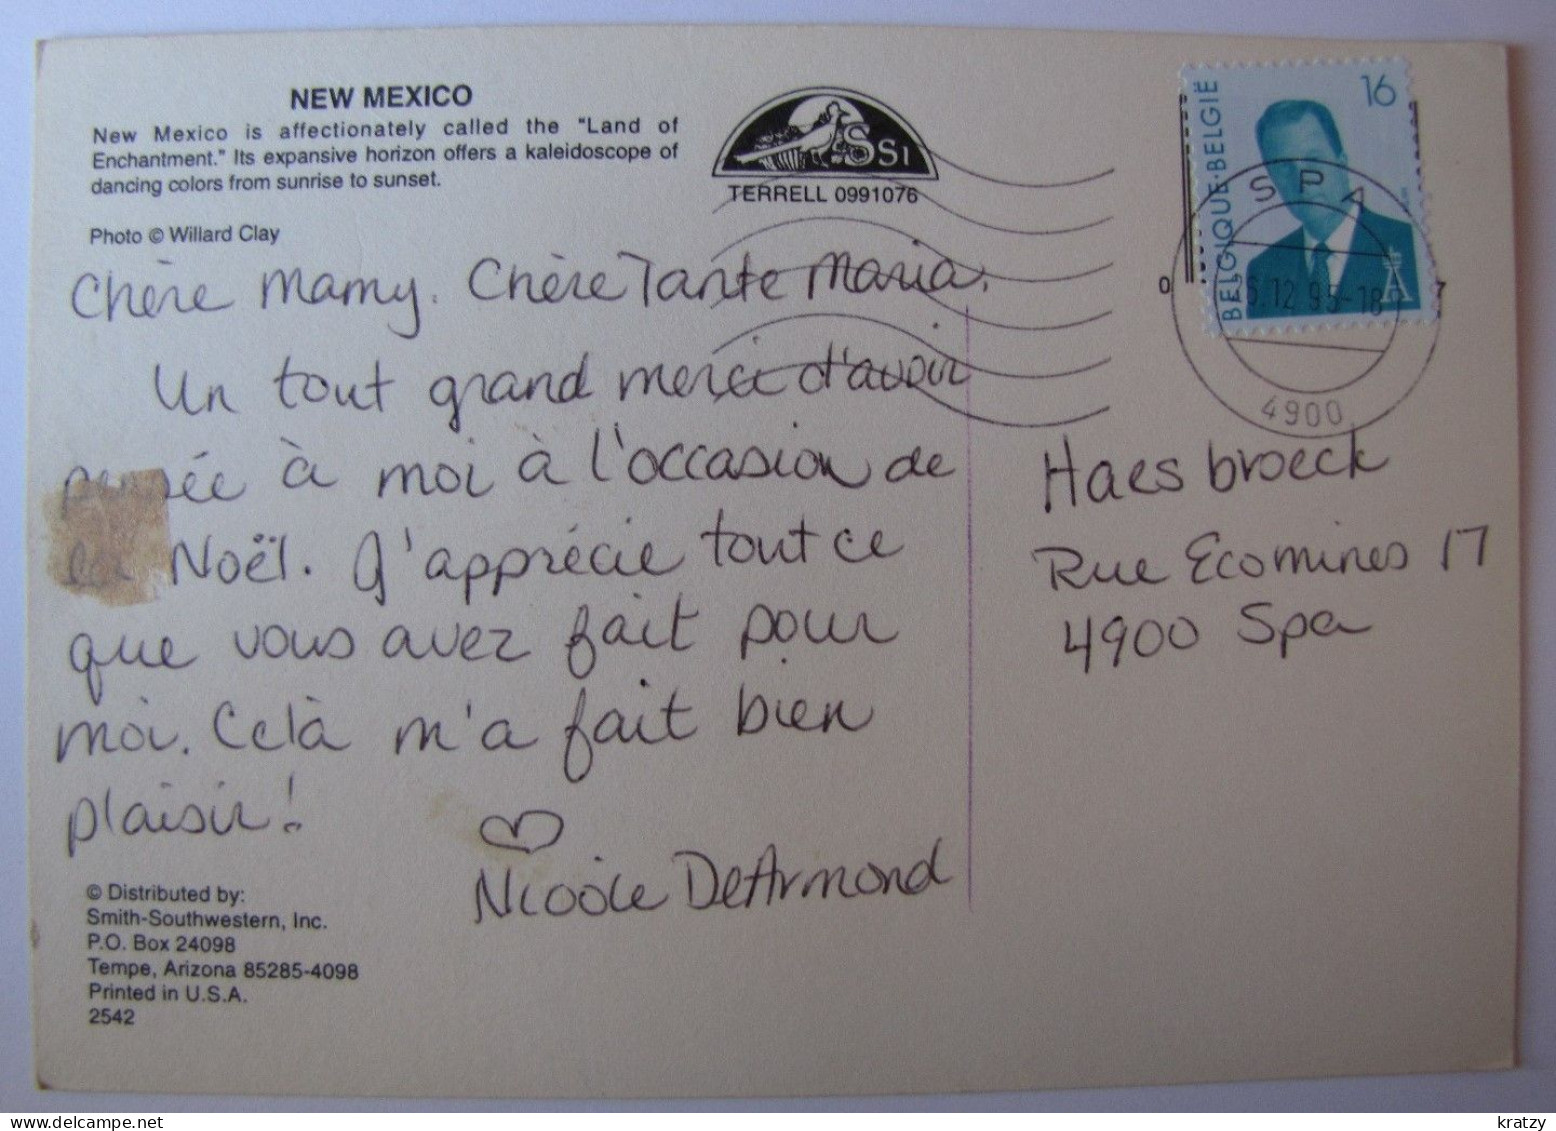 NEW MEXICO
New Mexico is affectionately called the "Land of
Enchantment." Its expansive horizon offers a kaleidoscope of
dancing colors from sunrise to sunset.
Photo © Willard Clay
SSI
TERRELL 0991076
BELGIQUE·BELGIË
16
SPA
6.12.95-18
0 7
4900
Chère Mamy. Chère Tante Maria.
Un tout grand merci d'avoir
pensée à moi à l'occasion de
Noël. J'apprécie tout ce
que vous avez fait pour
moi. Celà m'a fait bien
plaisir!
Nicole DeArmond
Haesbroeck
Rue Ecomines 17
4900 Spa
© Distributed by:
Smith-Southwestern, Inc.
P.O. Box 24098
Tempe, Arizona 85285-4098
Printed in U.S.A.
2542
www.delcampe.net
kratzy